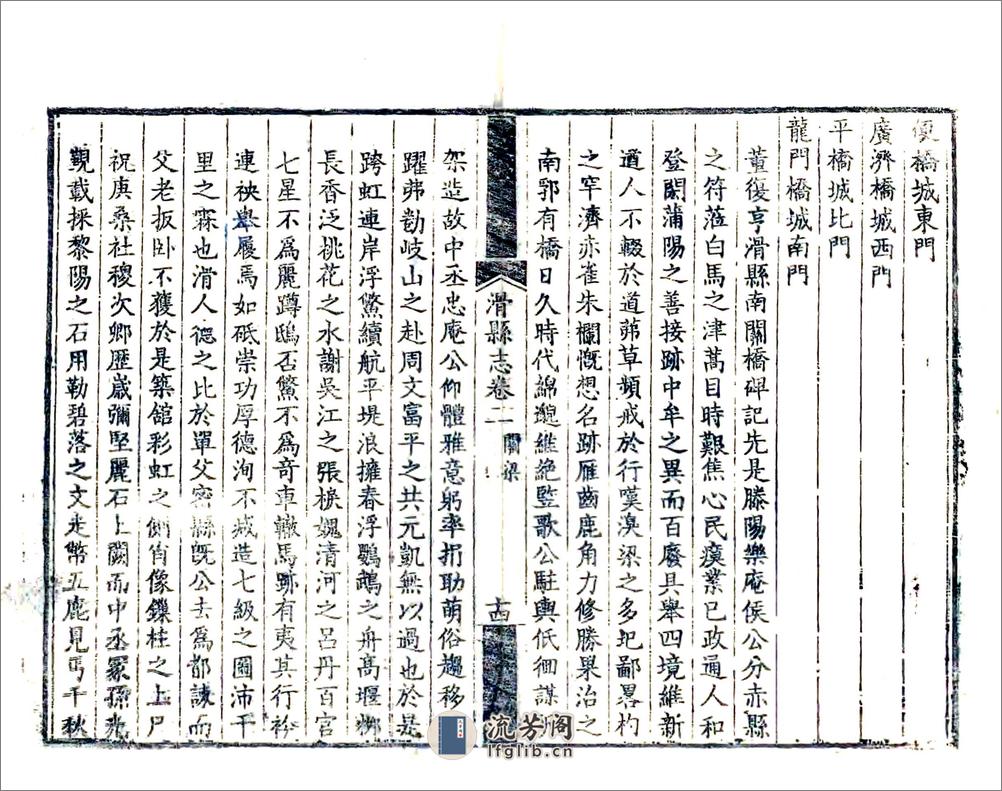 便橋城東門
廣濟橋城西門
平橋城北門
龍門橋城南門
董復亨滑縣南關橋碑記先是滕陽樂庵侯公分赤縣
之符蒞白馬之津蒿目時艱焦心民瘼業已政通人和
登閎蒲陽之善接跡中牟之異而百廢具舉四境維新
道人不輟於道茀草頻戒於行嘆溴梁之多圯鄙畧杓
之窄濟赤雀朱欄慨想名跡雁齒鹿角力修勝槩治之
南郭有橋日久時代綿邈維絶監歌公駐輿低徊謀所
架造故中丞忠庵公仰體雅意躬率捐助萌俗趨移
躍弗勸岐山之赴周文富平之共元凱無以過也於是
跨虹連岸浮鷩續航平堤浪擁春浮鸚鵡之舟高堰栁
長香泛桃花之水謝吳江之張檱媿清河之呂丹百宮
七星不爲麗蹲鴟否鷩不爲竒車轍馬跡有夷其行衿
連袂舉履焉如砥崇功厚德洵不减造七級之圖沛千
里之霖也滑人德之比於單父密縣旣公去爲都諫而
父老扳卧不獲於是築舘彩虹之側肖像鏁柱之上尸
祝庚桑社稷次鄉歷歲彌堅麗石上闕而中丞冡孫光
觀載採黎陽之石用勒碧落之文走幣五鹿見焉千秋
滑縣志卷二
關梁
十四
流芳阁
lfglib.cn